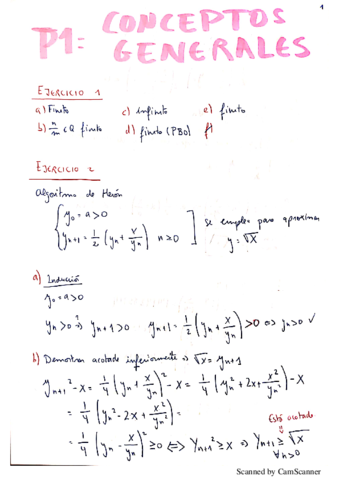 1
P1: CONCEPTOS
GENERALES
EJERCICIO 1
a) Finito c) infinito e) finito
b) n/m ∈ Q finito d) finito (PBO) f)
EJERCICIO 2
Algoritmo de Herón
{ y₀ = a > 0
{ yₙ₊₁ = 1/2 (yₙ + x/yₙ) n ≥ 0 ] se emplea para aproximar
y = √x
a) Inducción
y₀ = a > 0
yₙ > 0 ⇒? yₙ₊₁ > 0 yₙ₊₁ = 1/2 (yₙ + x/yₙ) > 0 ⇔ yₙ > 0 ✓
b) Demostrar acotado inferiormente ⇒ √x = yₙ₊₁
yₙ₊₁² - x = 1/4 (yₙ + x/yₙ)² - x = 1/4 (yₙ² + 2x + x²/yₙ²) - x
= 1/4 (yₙ² - 2x + x²/yₙ²) =
= 1/4 (yₙ - x/yₙ)² ≥ 0 ⇔ yₙ₊₁² ≥ x ⇒ yₙ₊₁ ≥ √x
Está acotado
y
∀n > 0
Scanned by CamScanner